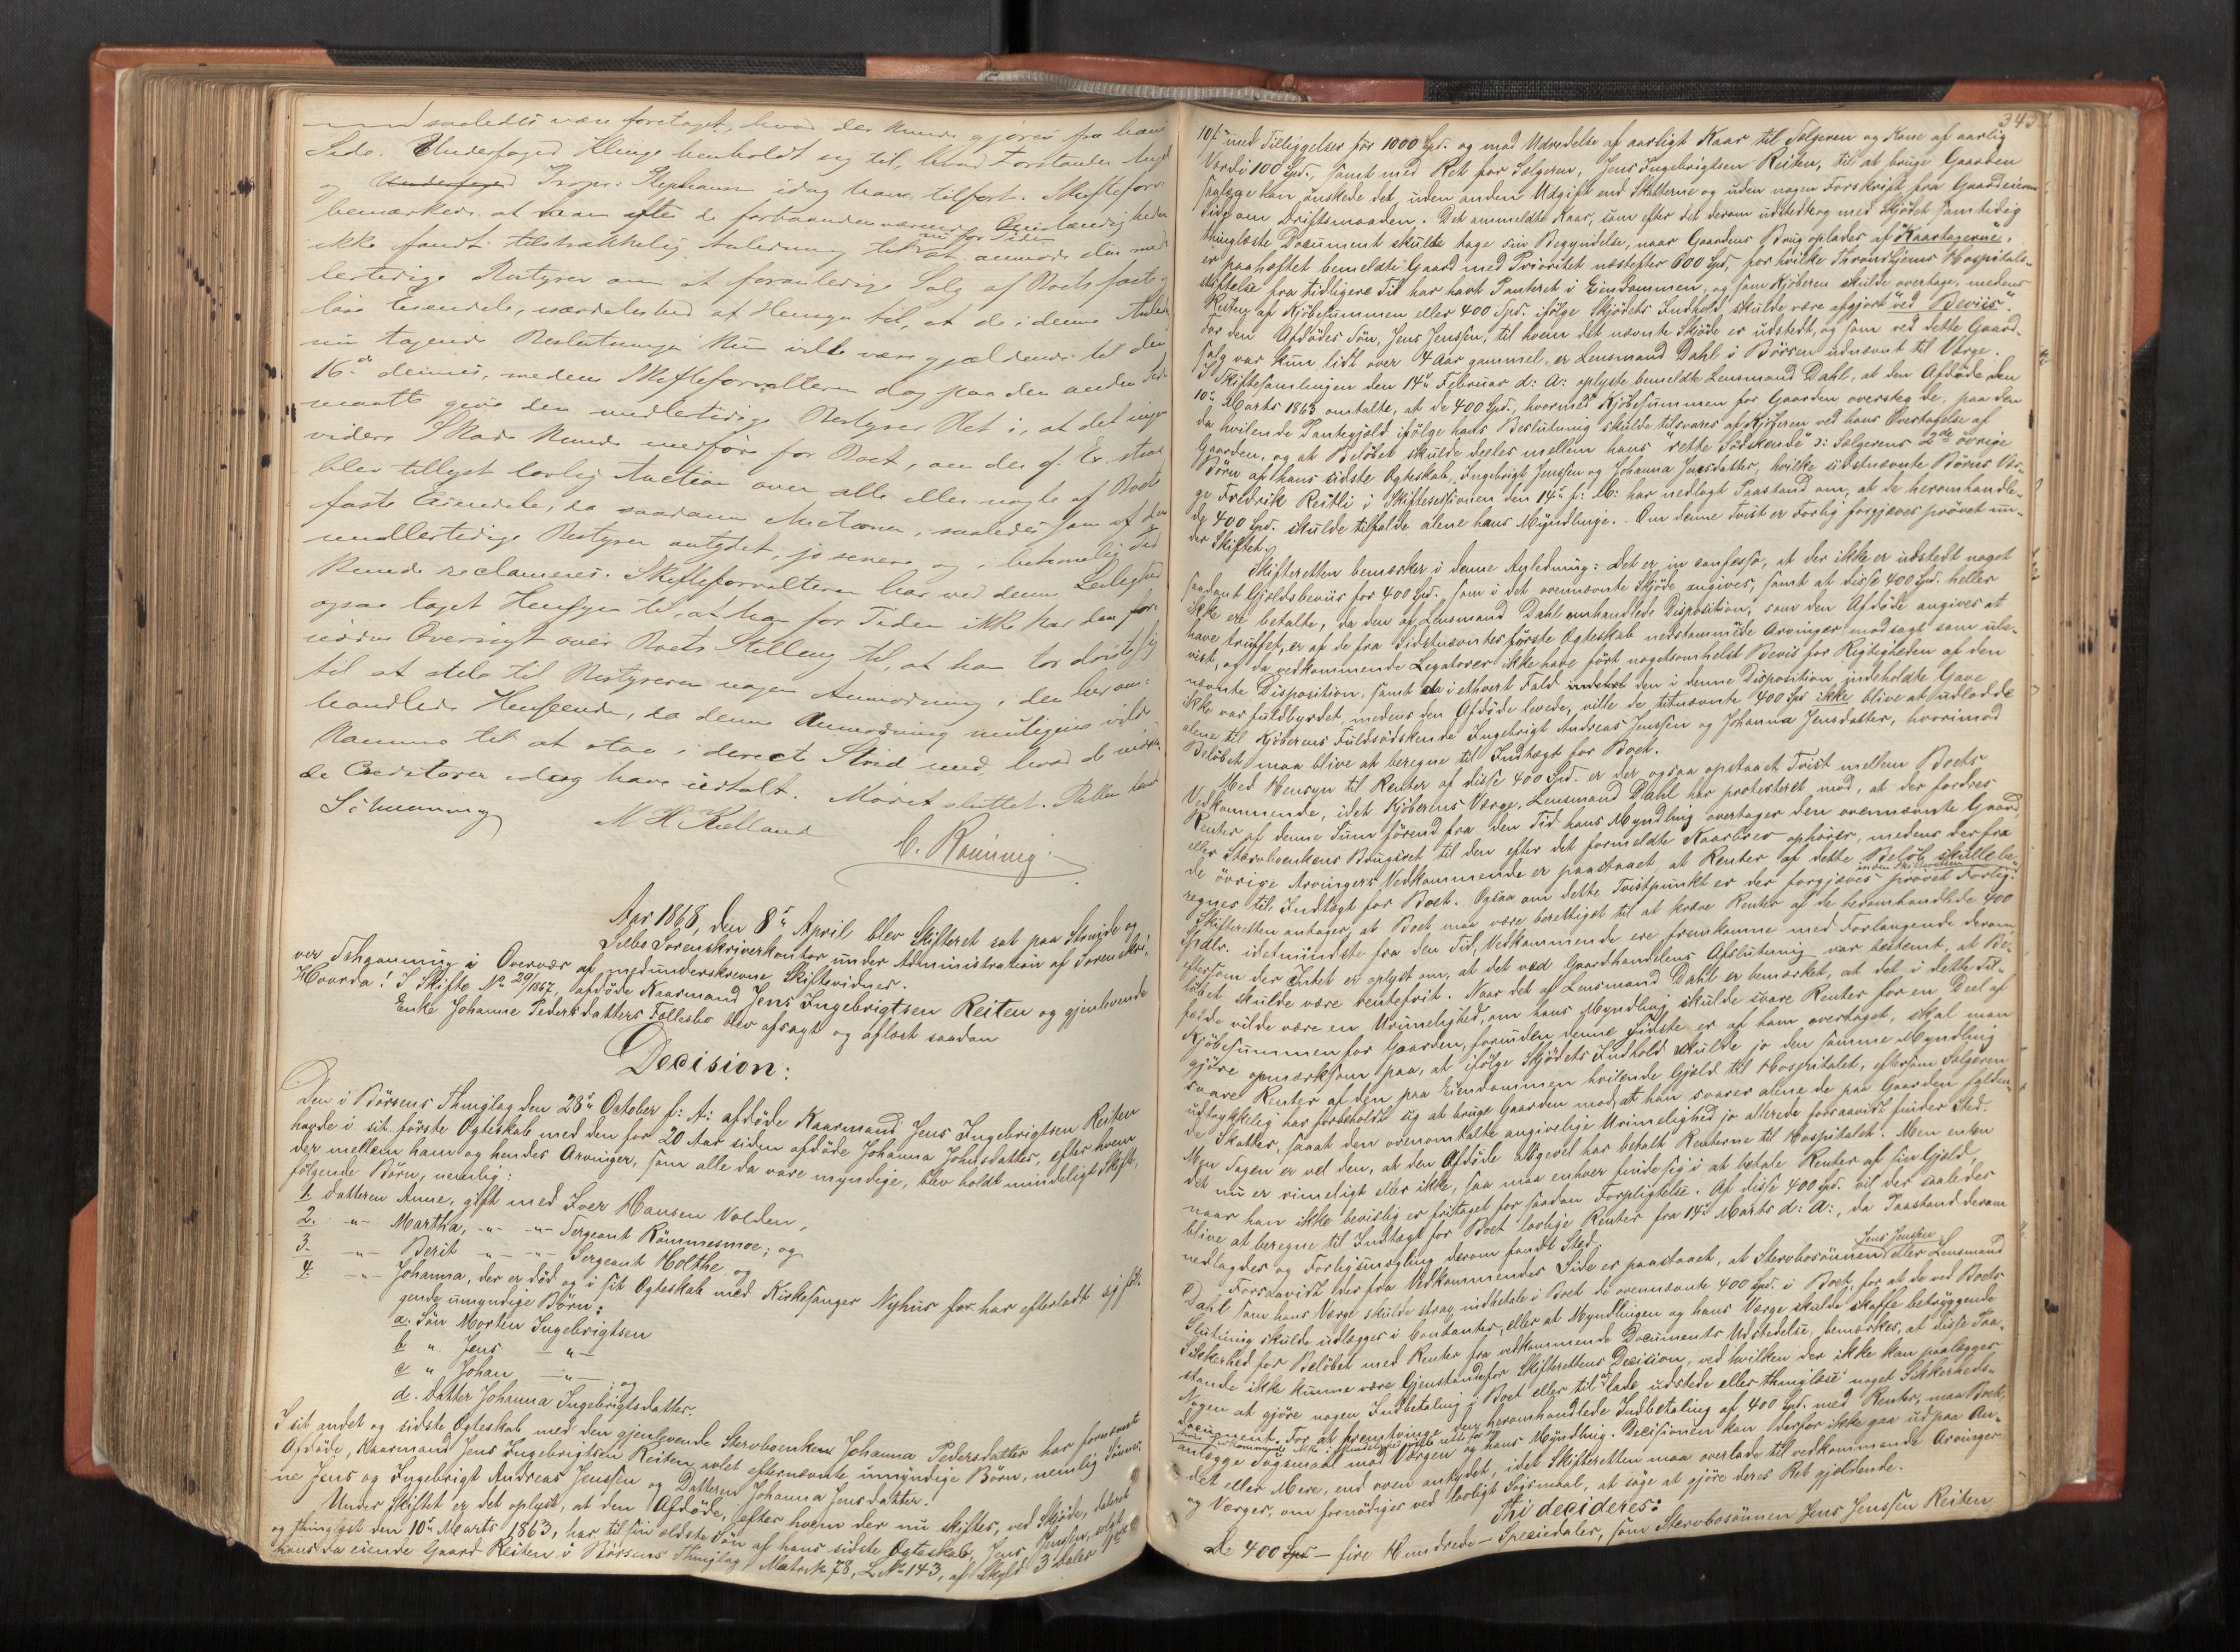 saaledes være foretaget, hvad der kunde gjøres fra hans
Side. Underfoged Klenge henholdt sig til, hvad Forstander
og Underfoged Propr: Stephansen idag have tilført. Skifteforv
bemærkede at man efter de forhaandenværende Omstændigheder
ikke fandt tilstrækkelig Anledning til nu for Tiden at anmode den mid-
lertidige Bestyrer om at foranledige Salg af Boets faste og
løse Eiendele, særdeleshed af Hensyn til, at de i denne Anledn
nu tagende Beslutninger kun ville være gjældende til den
16de dennes, medens Skifteforvalteren dog paa den anden Side
maatte give den midlertidige Bestyrer Ret i, at det ingen
videre Skade kunde medføre for Boet, om der f. Ex. strax
blev tillyst lovlig Auction over alle eller nogle af Boets
faste Eiendele, da saadanne Auctioner, saaledes som af den
midlertidige Bestyrer antydet, jo senere og i betimelig Tid
kunde reclameres. Skifteforvalteren har ved denne Leilighed
ogsaa taget Hensyn til, at han for Tiden ikke har den for-
nødne Oversigt over Boets Stilling til, at han tør driste sig
til at stile til Bestyreren nogen Anmodning i den her om-
handlede Henseende, da denne Anmodning muligens vilde
komme til at staa i directe Strid med, hvad de
de Creditorer idag have udtalt. Mødet sluttet. Retten hævet
Schwenning
N H Kielland
C. Rønning
Aar 1868, den 8de April blev Skifteret sat paa Strinde og
Selbo Sorenskriverkontor under Administration af Sorenskri-
ver Schganning i Overvær af medunderskrevne Skiftevidner.
Hvorda! I Skifte No 29/1867, afdøde Kaarmand Jens Ingebrigtsen Reiten og gjenlevende
Enke Johanne Pedersdatters Fællesbo blev afsagt og aflæst saadan
Decision:
Den i Børsens Thinglag den 28de October f: A: afdøde Kaarmand Jens Ingebrigtsen Reiten
havde i sit første Ægteskab med den for 20 Aar siden afdøde Johanna Johnsdatter, efter hvem
der mellem ham og hendes Arvinger, som alle da vare myndige, blev holdt mindeligt Skifte,
følgende Børn, nemlig:
1. Datteren Anne, gift med Iver Hansen Volden,
2. -"- Martha, -"- -"- Sergeant Rømmesmoe; og
3. -"- Berit -"- -"- Sergeant Holthe og
4. -"- Johanna, der er død og i sit Ægteskab med Kirkesanger Nyhus for har efterladt sig føl-
gende umyndige Børn:
a. Søn Morten Ingebrigtsen
b " Jens -"-
c " Johan -"- ; og
d. Datter Johanna Ingebrigtsdatter.
I sit andet og sidste Ægteskab med den gjenlevende Stervboenken Johanna Pedersdatter har fornævnte
Afdøde, Kaarmand Jens Ingebrigtsen Reiten avlet efternævnte umyndige Børn, nemlig Sønner-
ne Jens og Ingebrigt Andreas Jenssen og Datteren Johanna Jensdatter.
Under Skiftet er det oplyst, at den Afdøde, efter hvem der nu skiftes, ved Skjøde, dateret
og thinglyst den 10de Marts 1863, har til sin ældste Søn af hans sidste Ægteskab, Jens Jenssen, solgt
hans da eiende Gaard Reiten i Børsens Thinglag Matr. No 78, L. No 143, af Skyld 3 Daler
343.
10 ß med Tilliggelser for 1000 Spd. og mod Udredelse af aarligt Kaar til Sælgeren og Kone af aarlig
Værdi 100 Spd., samt med Ret for Sælgeren, Jens Ingebrigtsen Reiten, til at bruge Gaarden
saalænge han ønskede det, uden anden Udgift end Skatterne og uden nogen Forskrift fra Gaardeierens
Side om Driftsmaaden. Det anmeldte Kaar, som efter det derom udstedte og med Skjødet samtidig
thinglæste Document skulde tage sin Begyndelse, naar Gaardens Brug oplades af "Kaartagerne",
er paaheftet bemeldte Gaard med Prioritet næstefter 600 Spd., for hvilke Throndhjems Hospitals-
stiftelse fra tidligere Tid har havt Panteret i Eiendommen, og som Kjøberen skulde overtage, medens
Resten af Kjøbesummen eller 400 Spd. ifølge Skjødets Indhold, skulde være afgjort "ved Beviis".
For den Afdødes Søn, Jens Jenssen, til hvem det nævnte Skjøde er udstedt, og som ved dette Gaard-
salg var kun lidt over 4 Aar gammel, er Lensmand Dahl i Børsen udnævnt til Værge.
I Skiftesamlingen den 14de Februar d: A: oplyste bemeldte Lensmand Dahl, at den Afdøde den
10de Marts 1863 omtalte, at de 400 Spd., hvormed Kjøbesummen for Gaarden oversteg de, paa den
da hvilende Pantegjæld ifølge hans Beslutning skulde tilsvares af Kjøberen ved hans Overtagelse af
Gaarden, og at Beløbet skulde deeles mellem hans "rette Sødskende" ɔ: Sælgerens 2de øvrige
Børn af hans sidste Ægteskab, Ingebrigt Jenssen og Johanna Jensdatter, hvilke sidstnævnte Børns Vær-
ge Fredrik Reitli i Skiftesessionen den 14de f: M: har nedlagt Paastand om, at de heromhandle-
de 400 Spd. skulde tilfalde alene hans Myndlinge. Om denne Tvist er Forlig forgjæves prøvet un-
der Skiftet.
Skifteretten bemærker i denne Anledning: Det er in confesso, at der ikke er udstedt noget
saadant Gjældsbeviis for 400 Spd. som i det ovennævnte Skjøde angives, samt at disse 400 Spd. heller
ikke ere betalte, da den af Lensmand Dahl omhandlede Disposition, som den Afdøde angives at
have truffet, er af de fra Sidstnævntes første Ægteskab nedstammede Arvinger modsagt som ube-
vist, og da vedkommende Legatorer ikke have ført nogetsomhelst Bevis for Rigtigheden af den
nævnte Disposition, samt da i ethvert Fald den i denne Disposition indeholdte Gave
ikke var fuldbyrdet, medens den Afdøde levede, ville de titnævnte 400 Spd ikke blive at udlodde
alene til Kjøberens Fuldsødskende Ingebrigt Andreas Jenssen og Johanna Jensdatter, hvorimod
Beløbet maa blive at beregne til Indtægt for Boet.
Med Hensyn til Renter af disse 400 Spd. er der ogsaa opstaaet Tvist mellem Boets
Vedkommende, idet Kjøberens Værge, Lensmand Dahl har protesteret mod, at der fordres
Renter af denne Sum førend fra den Tid hans Myndling overtager den ovennævnte Gaard,
eller Stervboenkens Brugsret til den efter det formeldte Kaarbrev ophører, medens der fra
de øvrige Arvingers Vedkommende er paastaaet at Renter af dette Beløb skulle be-
regnes til Indtægt for Boet. Ogsaa om dette Tvistpunkt er der forgjæves inden Skifteretten prøvet Forlig.
Skifteretten antager, at Boet maa være berettiget til at kræve Renter af de heromhandlede 400
Spdlr. idetmindste fra den Tid, Vedkommende ere fremkomne med Forlangende derom,
eftersom der Intet er oplyst om, at det ved Gaardhandelens Afslutning var bestemt, at Be-
løbet skulde være rentefrit. Naar det af Lensmand Dahl er bemærket, at det i dette Til-
fælde vilde være en Urimelighed, om hans Myndling skulde svare Renter for en Deel af
Kjøbesummen for Gaarden, forinden denne Sidste er af ham overtaget, skal man
gjøre opmærksom paa, at ifølge Skjødets Indhold skulde jo den samme Myndling
svare Renter af den paa Eiendommen hvilende Gjæld til Hospitalet, eftersom Sælgeren
udtrykkelig har forbeholdt sig at bruge Gaarden mod, at han svarer alene de paa Gaarden falden-
de Skatter, saaat den ovenomtalte angivelige Urimelighed jo allerede forsaavidt finder Sted.
Men Sagen er vel den, at den Afdøde alligevel har betalt Renterne til Hospitalet. Men enten
det nu er rimeligt eller ikke, saa maa enhver finde sig i at betale Renter af sin Gjæld,
naar han ikke bevislig er fritaget for saadan Forpligtelse. Af disse 400 Spd. vil der saaledes
blive at beregne til Indtægt for Boet lovlige Renter fra 14de Marts d: A:, da Paastand derom
nedlagdes og Forligsmægling derom fandt Sted.
Forsaavidt der fra Vedkommendes Side er paastaaet, at Stervbosønnen Jens Jenssen eller Lensmand
Dahl som hans Værge skulde strax indbetale i Boet de ovennævnte 400 Spd. i Boet, for at de ved Boets
Slutning skulde udlægges i Contanter, eller at Myndlingen og hans Værge skulde skaffe betryggende
Sikkerhed for Beløbet med Renter fra vedkommende Documents Udstedelse, bemærkes, at disse Paa-
stande ikke kunne være Gjenstande for Skifterettens Decision, ved hvilken der ikke kan paalægges
Nogen at gjøre nogen Indbetaling i Boet eller til at lade udstede eller thinglæse noget Sikkerheds-
document. For at fremtvinge den heromhandlede Indbetaling af 400 Spd. med Renter, maa Boet,
anlægge Søgsmaal mod Værgen og hans Myndling. Decisionen kan derfor ikke gaa ud paa An-
det eller Mere, end oven antydet, idet Skifteretten maa overlade til vedkommende Arvinger
og Værger, om fornødiges ved lovligt Søgsmaal, at søge at gjøre deres Ret gjældende.
Thi decideres:
De 400 Spd – fire Hundrede – Speciedaler, som Stervbosønnen Jens Jenssen Reiten